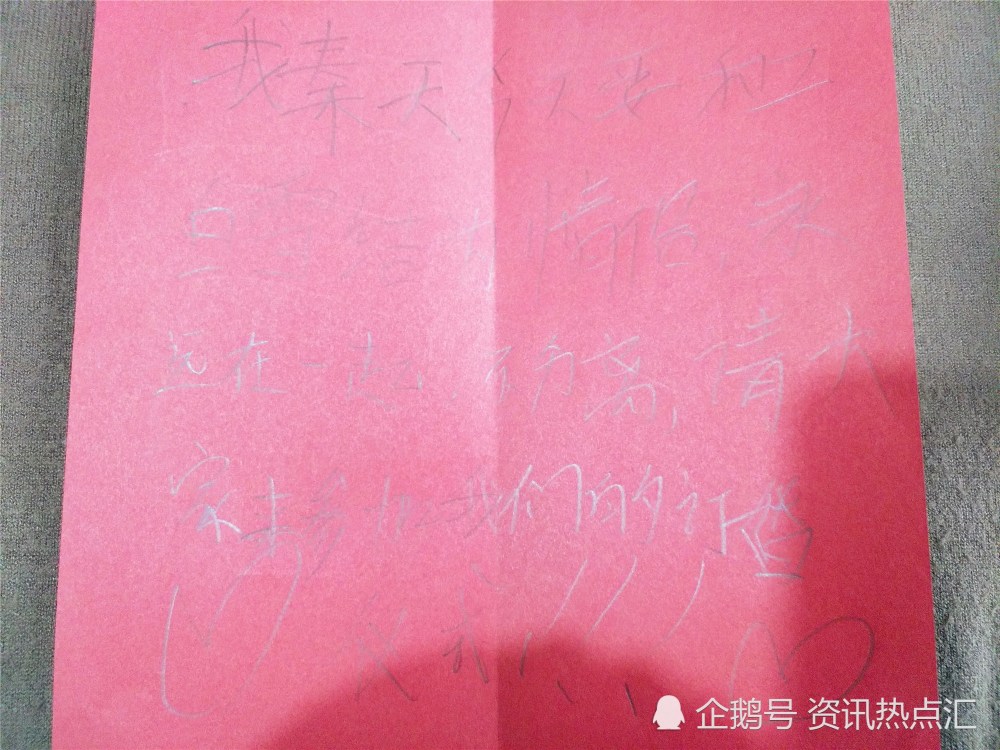 我秦天今天要和
结为情侣,永
远在一起,不分离,请大
家来参加我们的订婚
仪式!!!
企鹅号 资讯热点汇